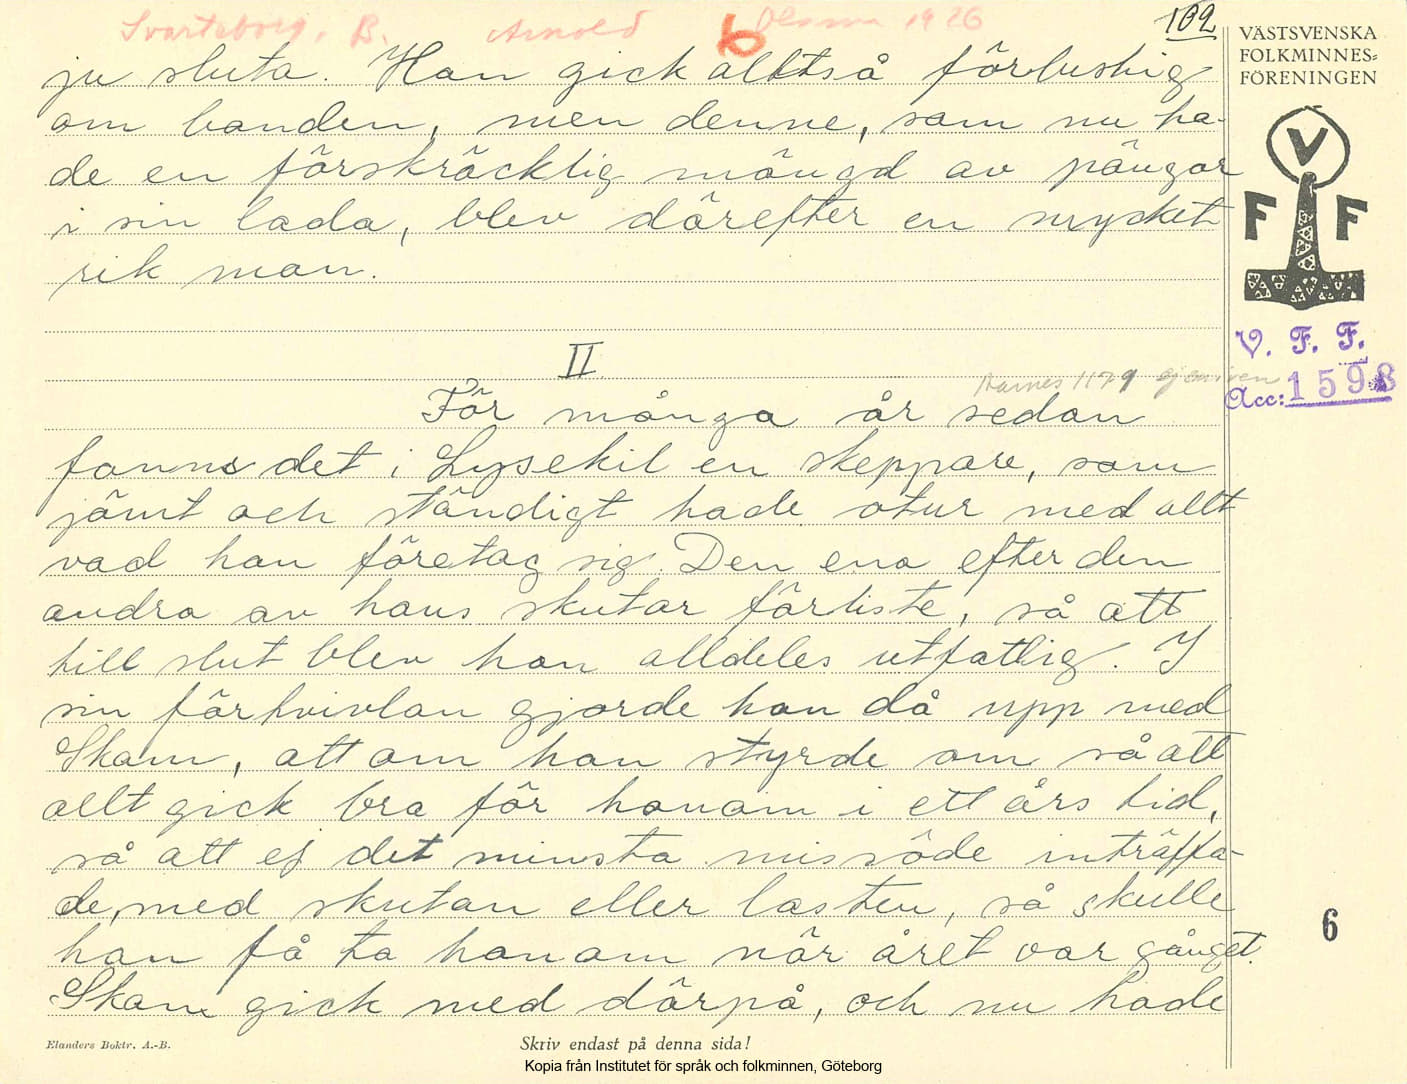 Svarteborg, B. Arnold Olsson 1926
6
102
VÄSTSVENSKA
FOLKMINNES=
FÖRENINGEN
V
F F
V. F. F.
Acc: 1598
ju sluta. Han gick alltså förlustig
om bonden, men denne, som nu ha-
de en förskräcklig mängd av pängar
i sin lada, blev därefter en mycket
rik man.
II
För många år sedan
fanns det i Lysekil en skeppare, som
jämt och ständigt hade otur med allt
vad han företag sig. Den ena efter den
andra av hans skutar förliste, så att
till slut blev han alldeles utfattig. I
sin förtvivlan gjorde han då upp med
Skam, att om han styrde om så att
allt gick bra för honom i ett års tid,
så att ej det minsta missöde inträffa-
de, med skutan eller lasten, så skulle
han få ta honom när året var gånget.
Skam gick med därpå, och nu hade
6
Elanders Boktr. A.-B.
Skriv endast på denna sida!
Kopia från Institutet för språk och folkminnen, Göteborg